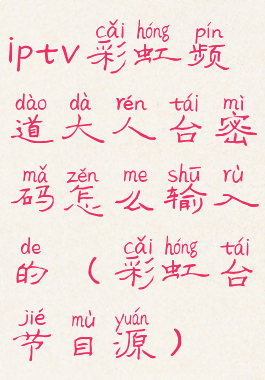 cǎi hóng pín
iptv彩虹频
dào dà rén tái mì
道大人台密
mǎ zěn me shū rù
码怎么输入
de cǎi hóng tái
的(彩虹台
jié mù yuán
节目源)